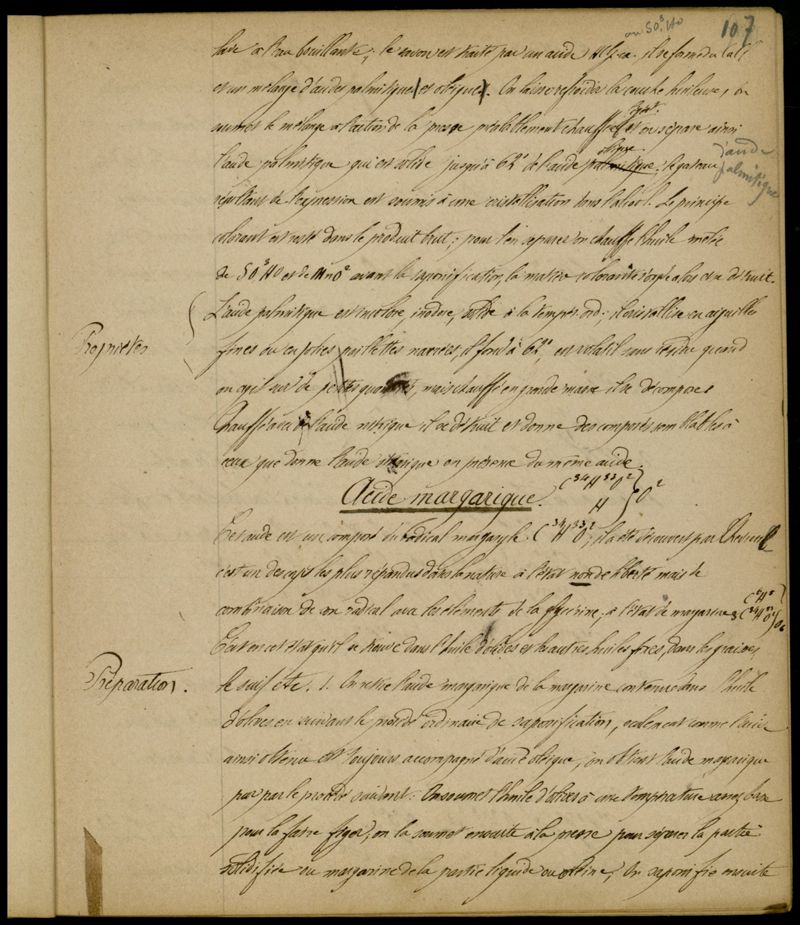 107
ou SO³HO
à l'eau bouillante; le savon est traité par un acide il se forme
et un mélange d'acides palmitique (et oléique). On laisse refroidir la couche huileuse, on
soumet le mélange à l'action de la presse préalablement chauffée et on sépare ainsi
l'acide palmitique qui est solide jusqu'à 62° de l'acide palmitique oléique; le gateau
d'acide palmitique
résultant de l'expression est soumis à une cristallisation dans l'alcool. Le principe
colorant est resté dans le produit brut; pour l'en séparer on chauffe l'huile mêlée
de SO³HO et de MnO² avant la saponification, la matière colorante s'oxyde alors et se détruit.
Propriétés
L'acide palmitique est incolore inodore, solide à la temp. ord; il cristallise en aiguilles
fines ou en petites paillettes nacrées, il fond à 62°, est volatil sans résidu quand
on agit sur de petites quantités, mais chauffé en grande masse il se décompose
Chauffé avec l'acide nitrique il se détruit et donne des composés semblables à
ceux que donne l'acide en présence du même acide.
Acide margarique. C³⁴H³³O² H } O²
Cet acide est un composé du radical margaryle C³⁴H³³O²; il a été découvert par Chevreul
c'est un des corps les plus répandus dans la nature à l'état non de liberté mais de
combinaison de son radical avec les éléments de la glycérine, à l'état de margarine
C'est en cet état qu'il se trouve dans l'huile d'olives et les autres huiles fixes, dans les graines
Préparation.
le suif etc. 1. On retire l'acide margarique de la margarine contenue dans l'huile
d'olives en suivant le procédé ordinaire de saponification, seulement comme l'acide
ainsi obtenu est toujours accompagné d'acide oléique, on obtient l'acide margarique
pur par le procédé suivant: On soumet l'huile d'olives à une température assez basse
pour la faire figer, on la soumet ensuite à la presse pour séparer la partie
solidifiée ou margarine de la partie liquide ou oléine, On saponifie ensuite